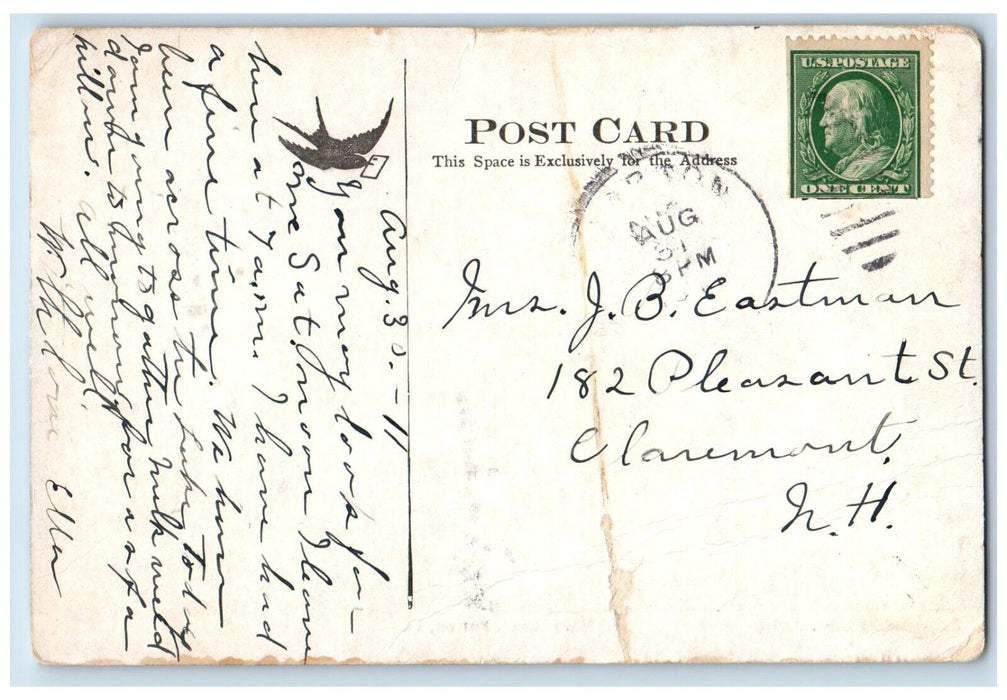 POST CARD
This Space is Exclusively for the Address
U.S. POSTAGE
ONE CENT
BARTON
AUG
31
PM
Mrs. J. B. Eastman
182 Pleasant St.
Claremont,
N. H.
Aug. 30. - 11
You may look for
me Sat. noon I leave
here at 7 a.m. I have had
a fine time. We have
been across the lake today
Tom going to gather milk weed
down to for a sofa
pillow. All well.
With love Ella